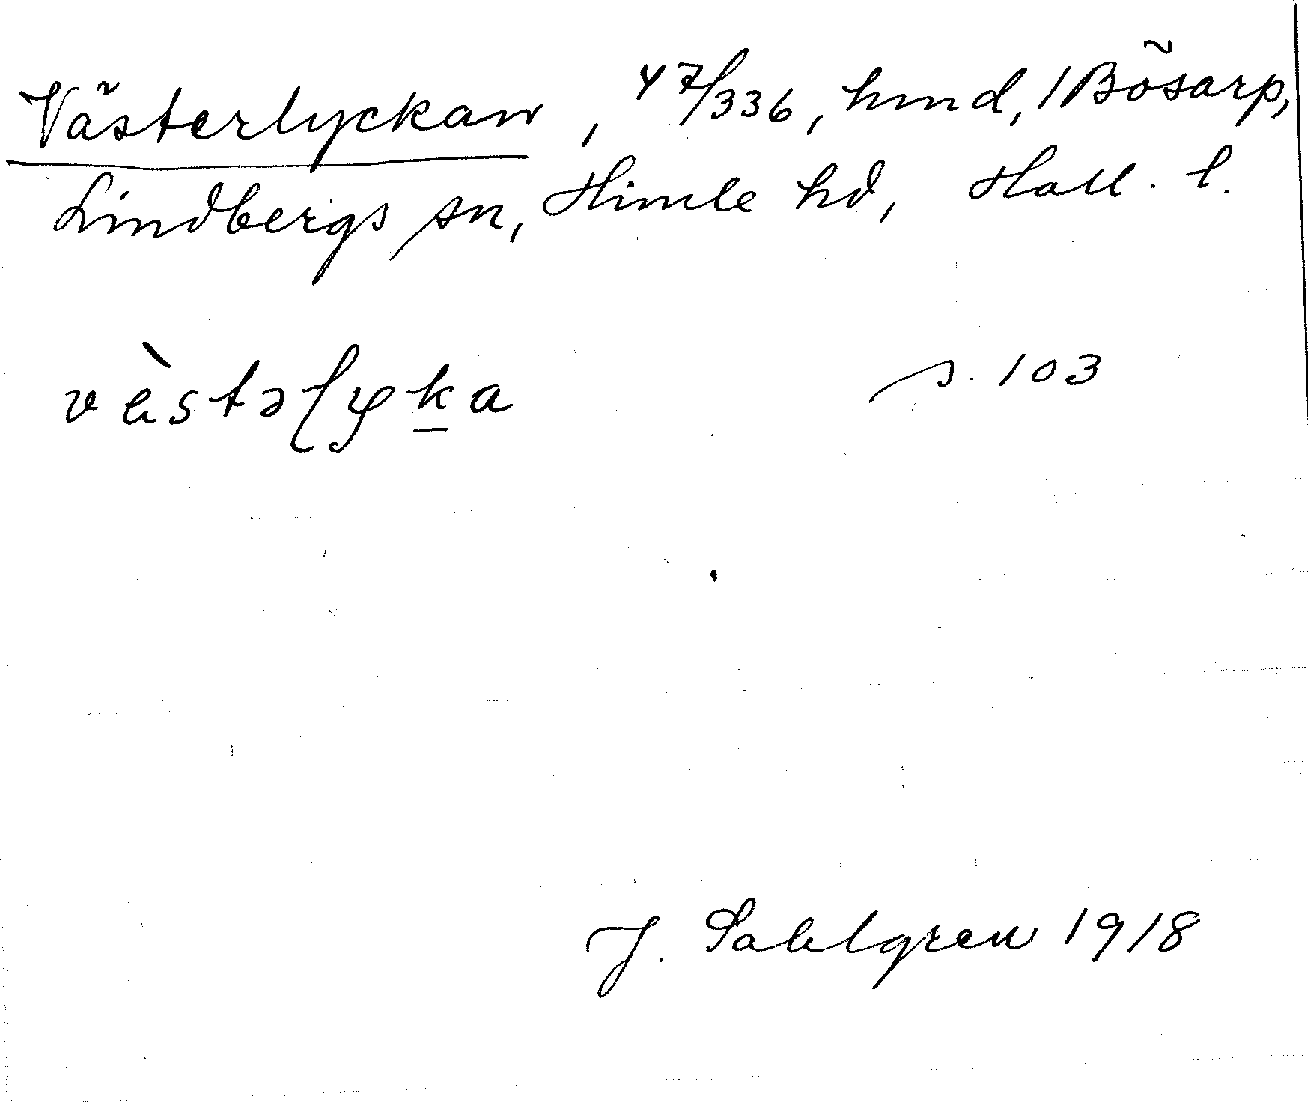 Västerlyckan, 47/336, hmd, 1 Bösarp,
Lindbergs sn, Himle hd, Hall. l.
vèstəlyka s. 103
J. Sahlgren 1918